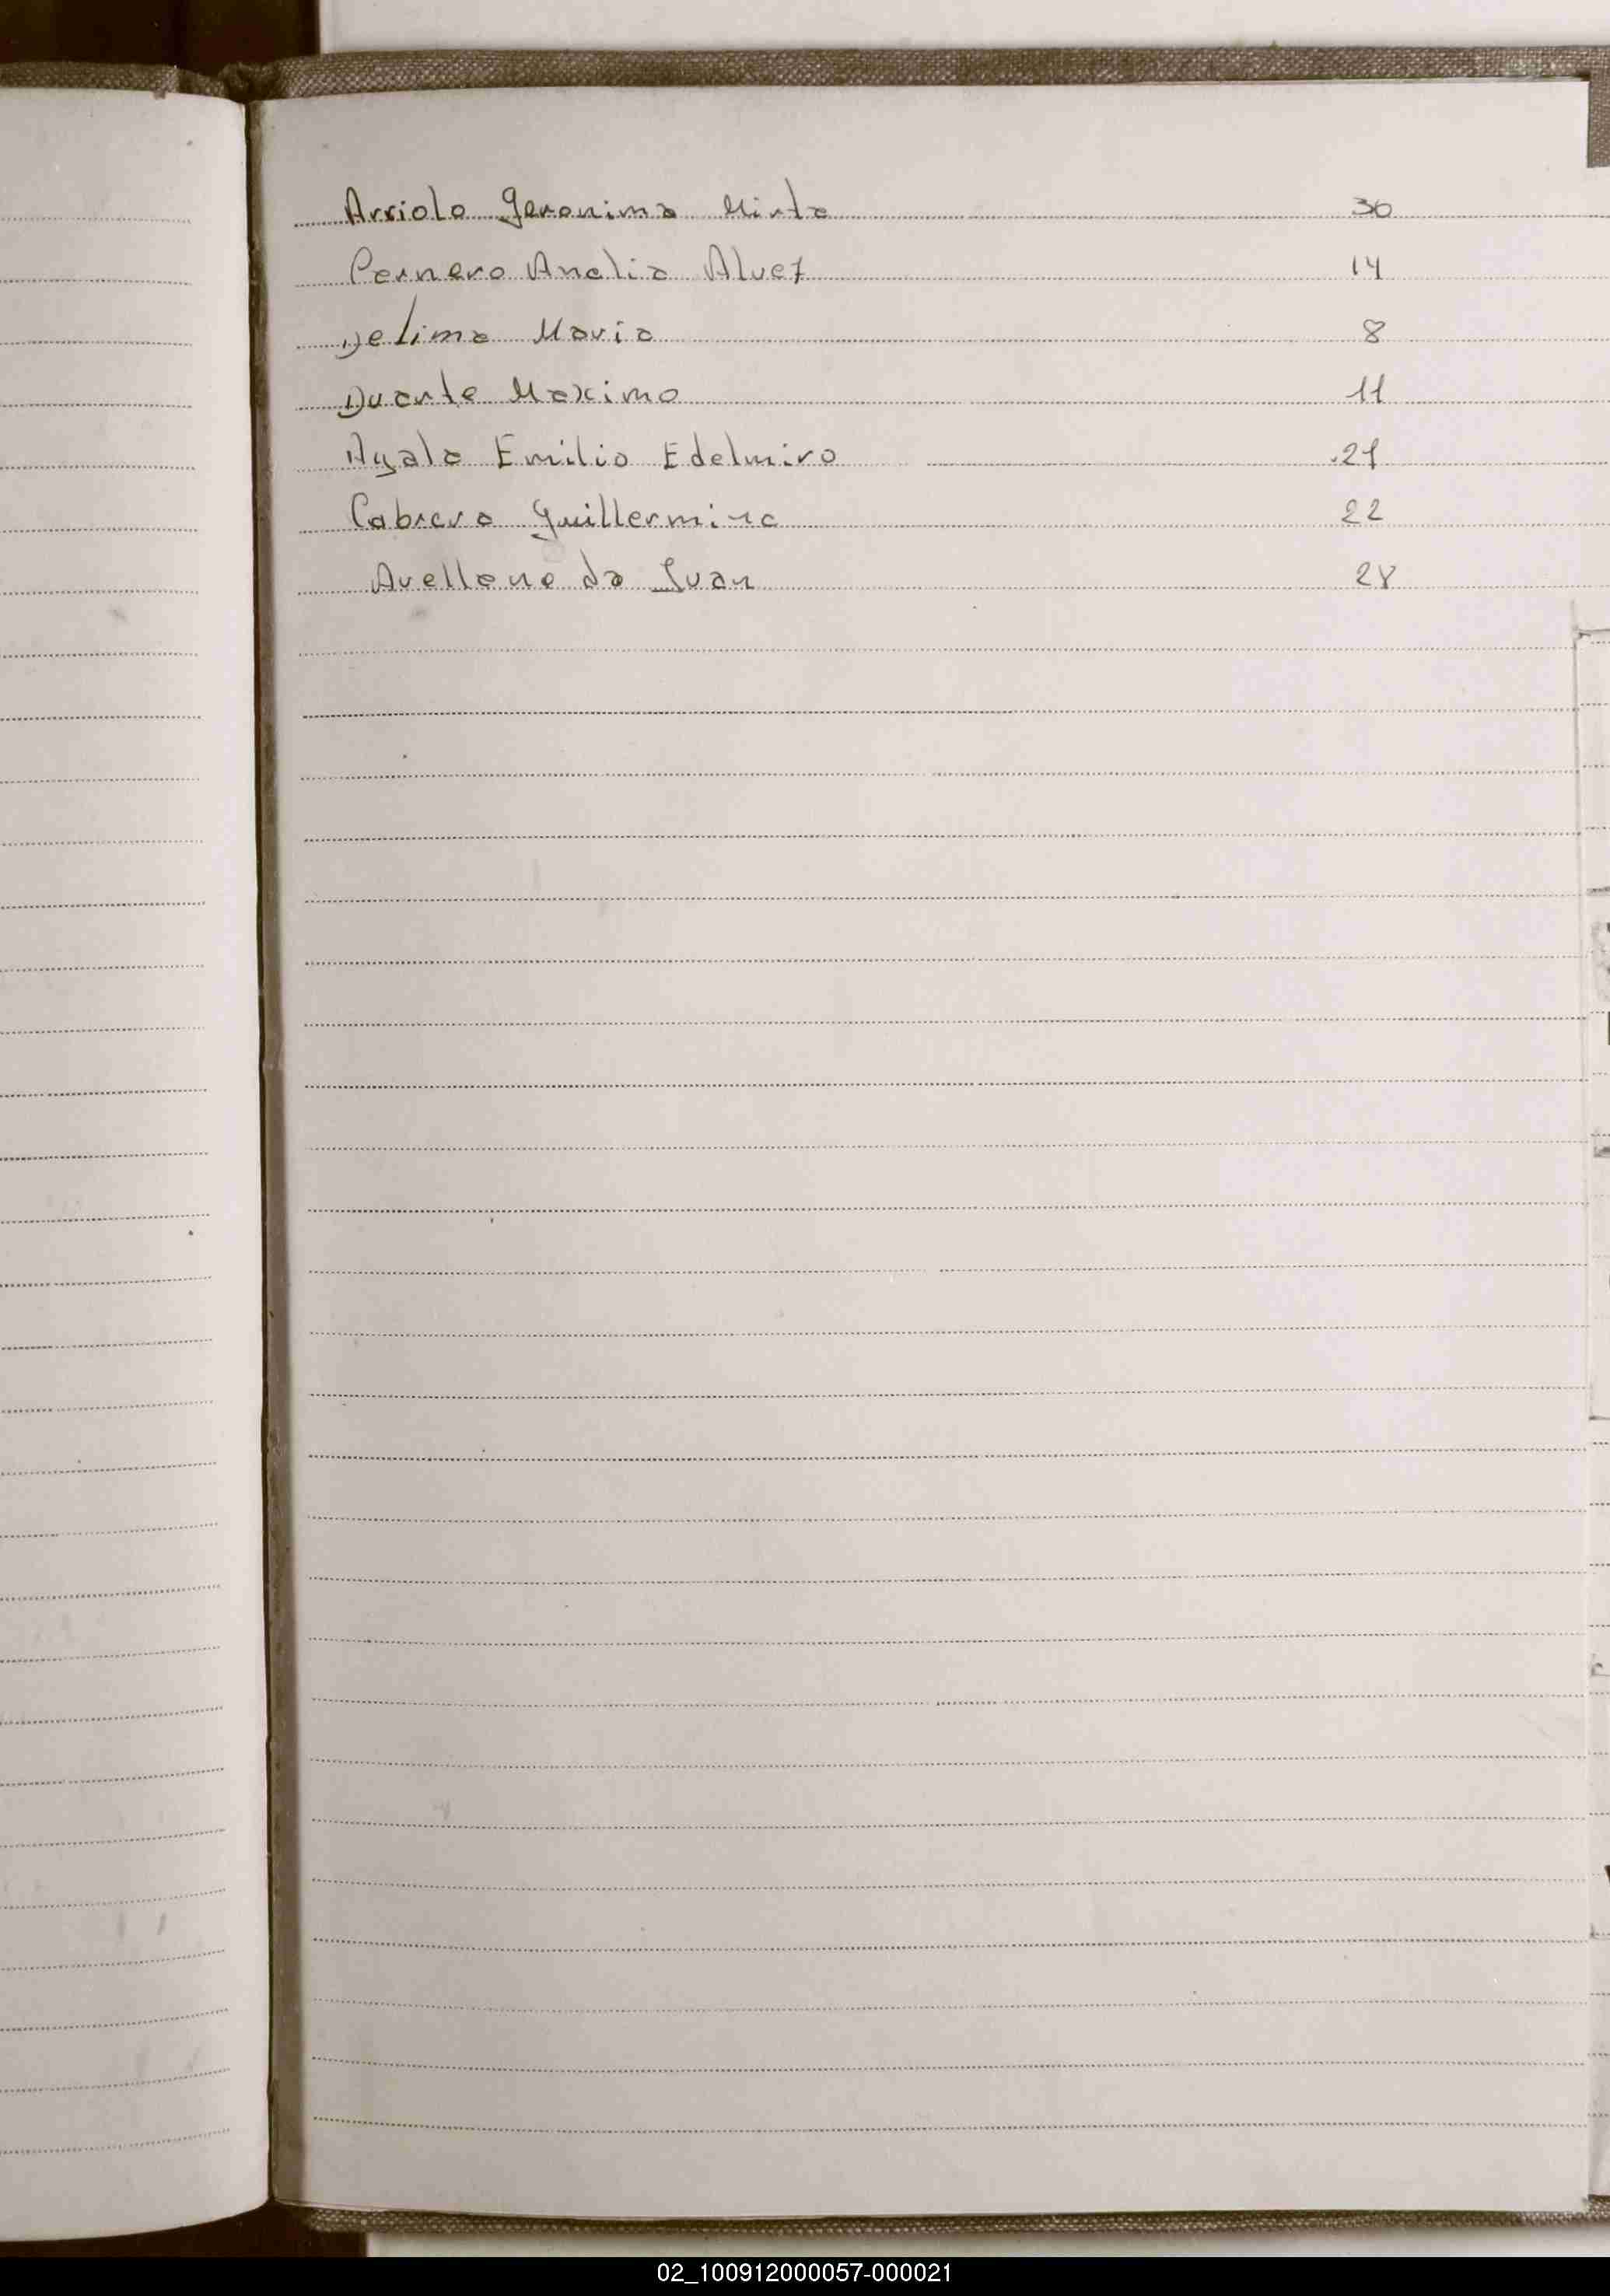 Arriola Geronima Mirta 30
Pernero Analia Alvez 14
Delima Maria 8
Duarte Maximo 11
Ayala Emilio Edelmiro 21
Cabrera Guillermina 22
Avellaneda Juan 28
02_100912000057-000021